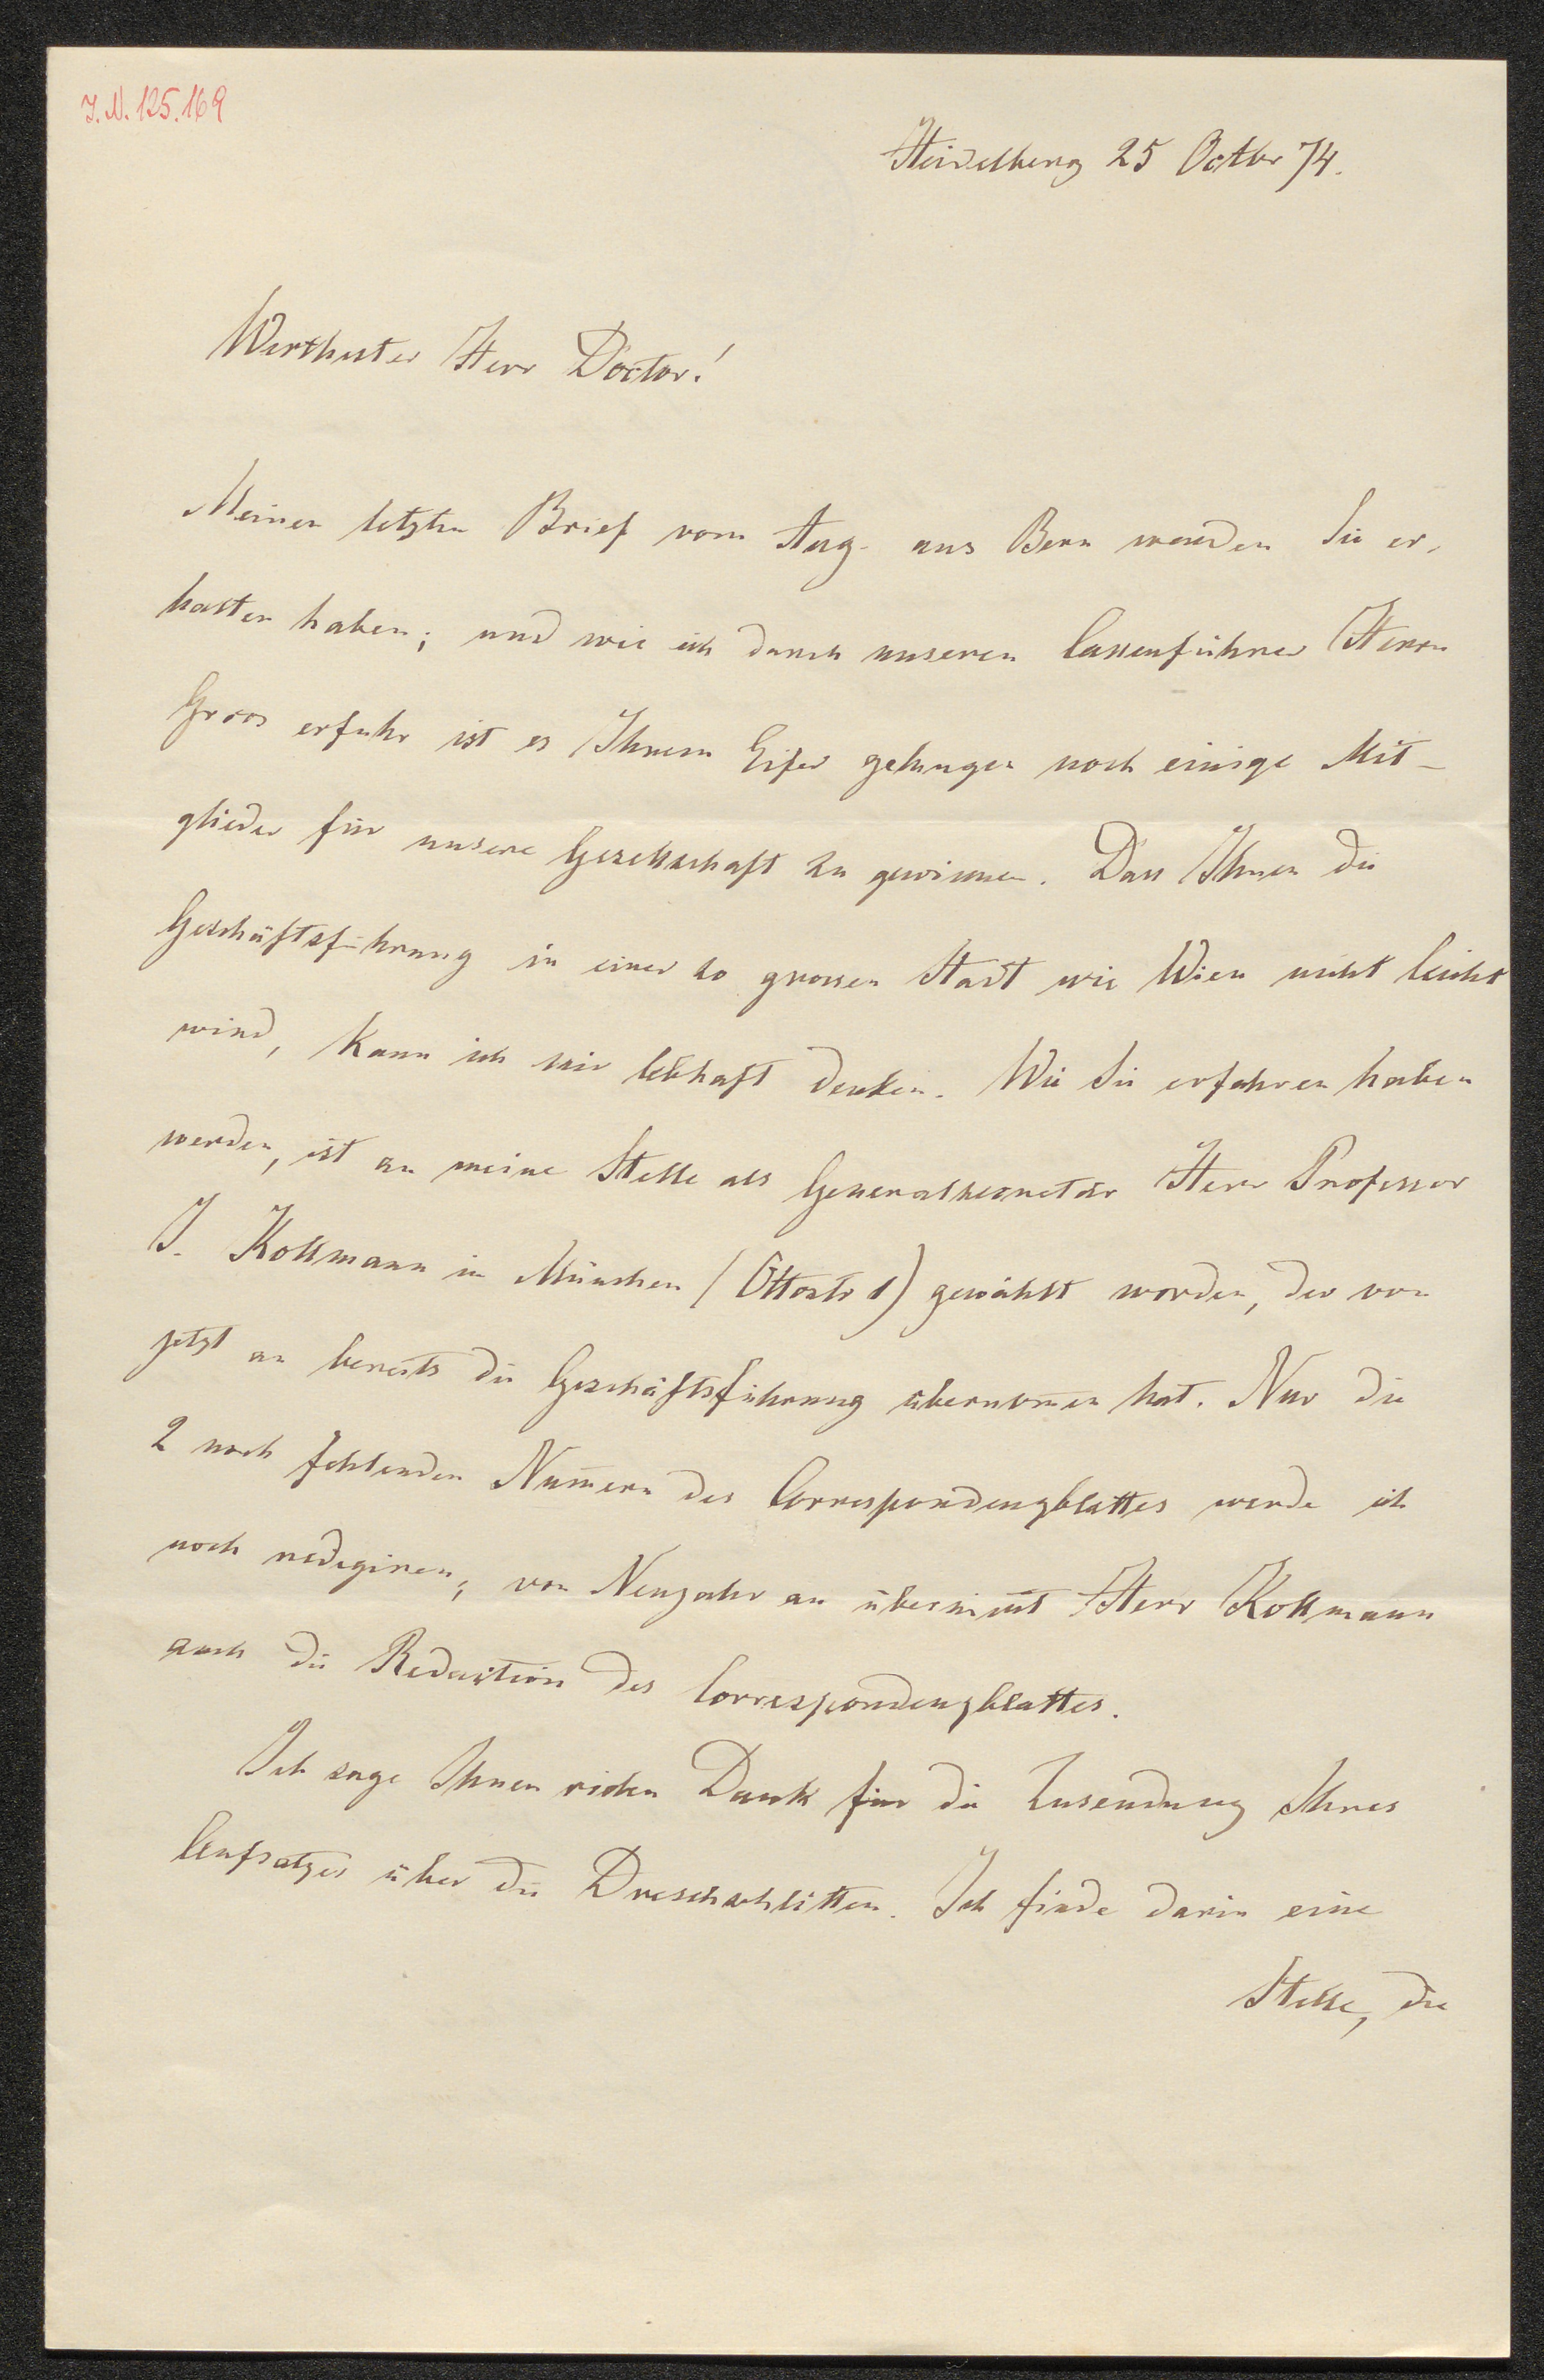 J.N. 125.169
Heidelberg 25 Octbr 74.
Werthester Herr Doctor!
Meinen letzten Brief vom Aug. aus Bern werden Sie er-
halten haben; und wie ich durch unseren Cassenführer Herrn
Groos erfuhr ist es Ihrem Eifer gelungen noch einige Mit-
glieder für unsere Gesellschaft zu gewinnen. Dass Ihnen die
Geschäftsführung in einer so grossen Stadt wie Wien nicht leicht
wird, kann ich mir lebhaft denken. Wie Sie erfahren haben
werden, ist an meine Stelle als Generalsecretär Herr Professor
J. Kollmann in München (Ottostr 1) gewählt worden, der von
jetzt an bereits die Geschäftsführung übernom̅en hat. Nur die
2 noch fehlenden Num̅ern des Correspondenzblattes werde ich
noch redigiren; von Neujahr an übernim̅t Herr Kollmann
auch die Redaction des Correspondenzblattes.
Ich sage Ihnen vielen Dank für die Zusendung Ihres
Aufsatzes über die Dreschschlitten. Ich finde darin eine
Stelle, die